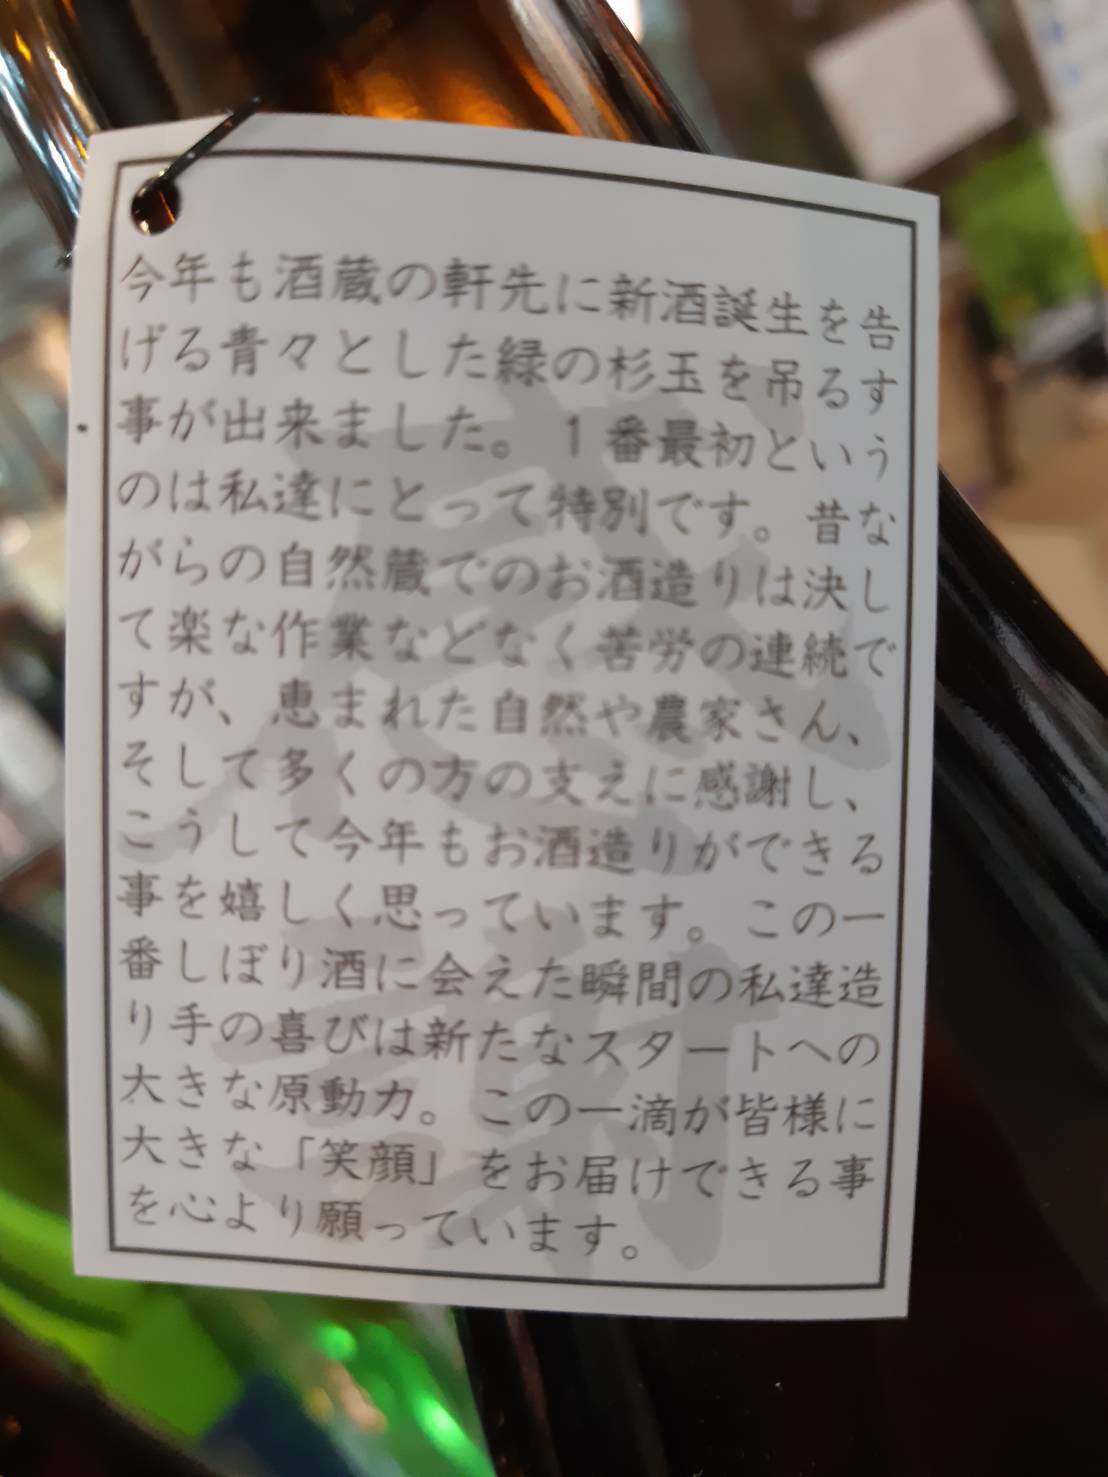 今年も酒蔵の軒先に新酒誕生を告
げる青々とした緑の杉玉を吊るす
事が出来ました。1番最初という
のは私達にとって特別です。昔な
がらの自然蔵でのお酒造りは決し
て楽な作業などなく苦労の連続で
すが、恵まれた自然や農家さん、
そして多くの方の支えに感謝し、
こうして今年もお酒造りができる
事を嬉しく思っています。この一
番しぼり酒に会えた瞬間の私達造
り手の喜びは新たなスタートへの
大きな原動力。この一滴が皆様に
大きな「笑顔」をお届けできる事
を心より願っています。
感謝